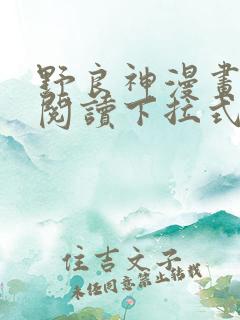 野良神漫畫
閱讀下拉式
住吉文子
未經同意禁止轉載